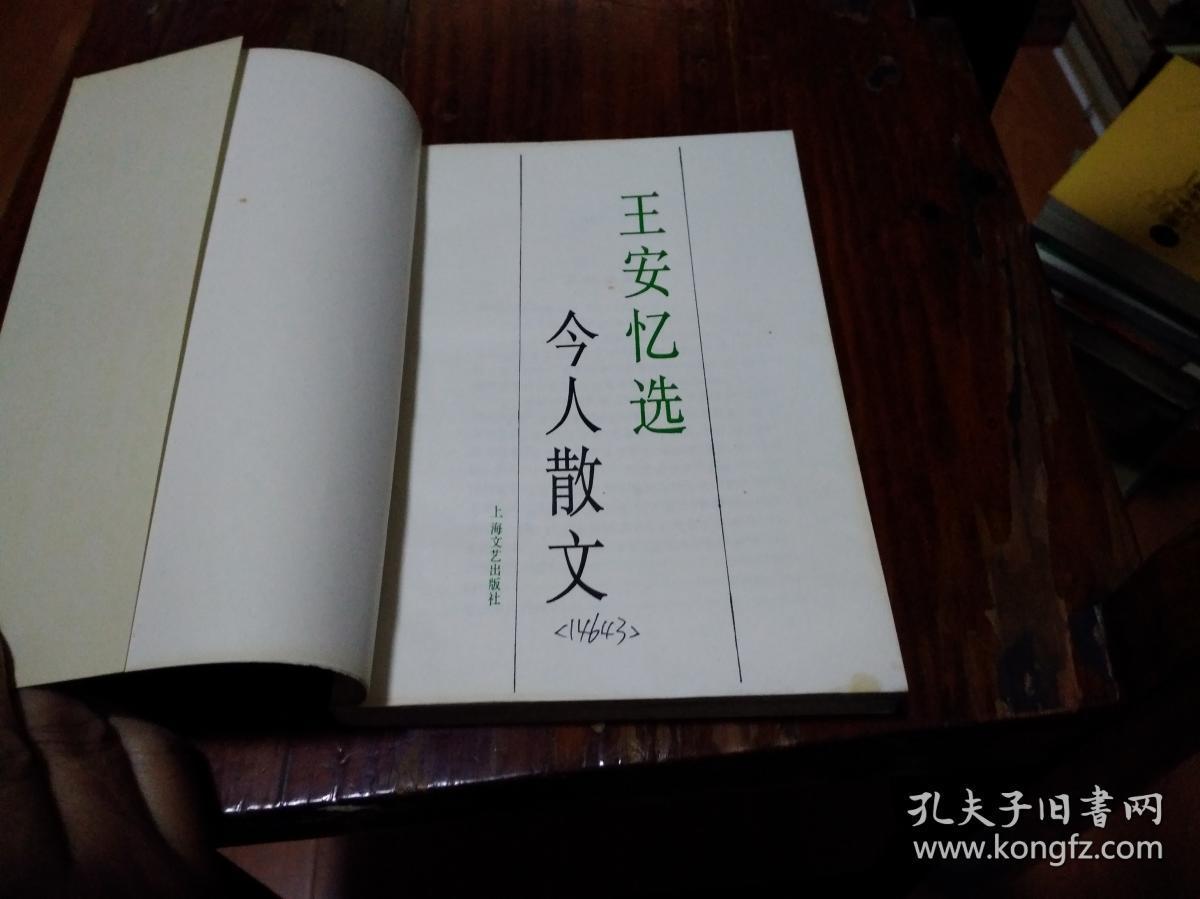 王安忆选
今人散文
<14643>
上海文艺出版社
孔夫子旧書网
www.kongfz.com